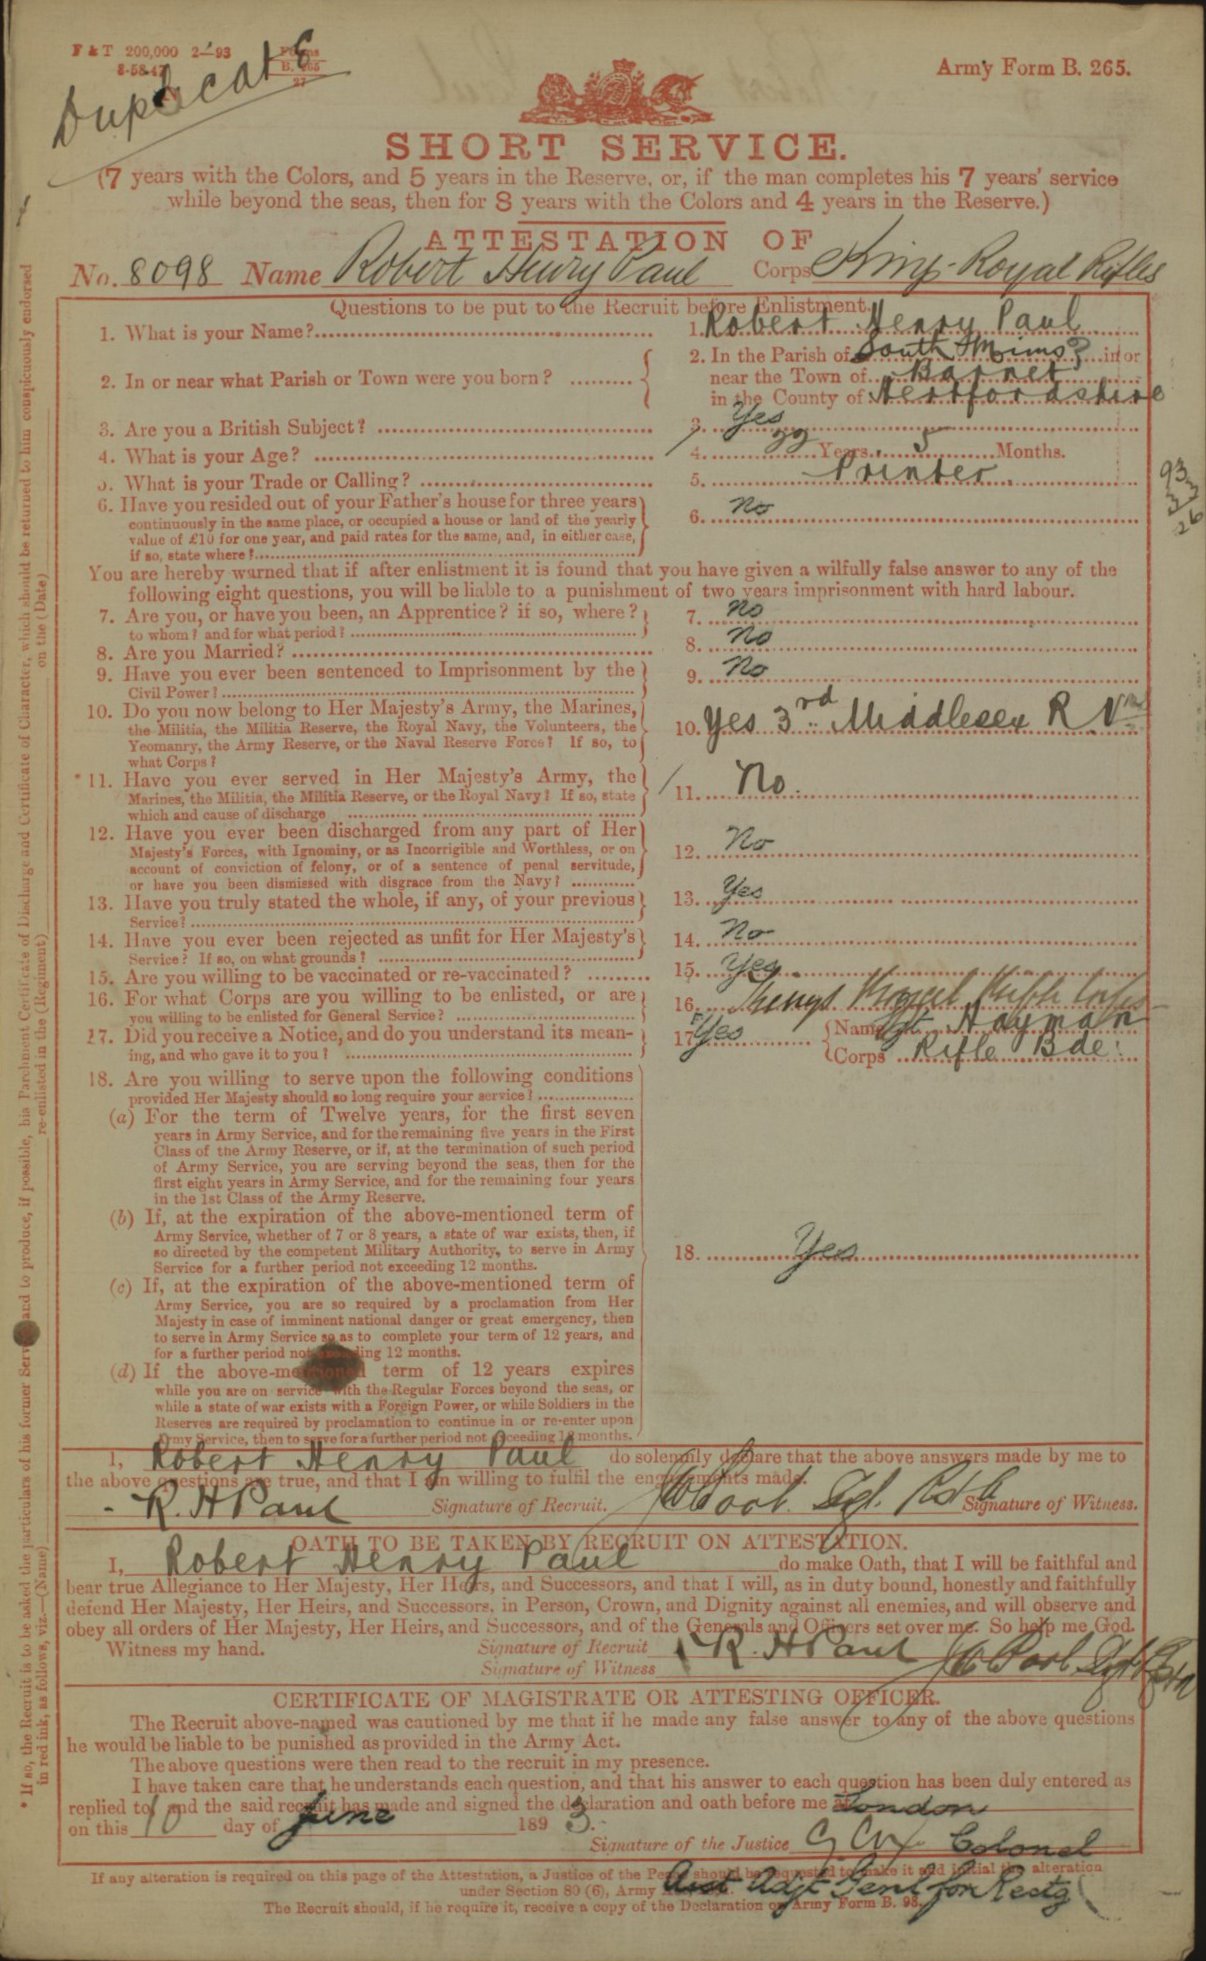 F & T 200,000 2—93
8-58-47
Forms
B. 265
27
Duplicate
Army Form B. 265.
SHORT SERVICE.
(7 years with the Colors, and 5 years in the Reserve, or, if the man completes his 7 years' service
while beyond the seas, then for 8 years with the Colors and 4 years in the Reserve.)
ATTESTATION OF
No. 8098 Name Robert Henry Paul Corps Kings Royal Rifles
Questions to be put to the Recruit before Enlistment.
1. What is your Name? 1. Robert Henry Paul
2. In or near what Parish or Town were you born? 2. In the Parish of South Mims? in or
near the Town of Barnet
in the County of Hertfordshire
3. Are you a British Subject? 3. Yes
4. What is your Age? 4. 22 Years 5 Months.
5. What is your Trade or Calling? 5. Printer
93
3
3
26
6. Have you resided out of your Father's house for three years
continuously in the same place, or occupied a house or land of the yearly 6. No
value of £10 for one year, and paid rates for the same, and, in either case,
if so, state where?
You are hereby warned that if after enlistment it is found that you have given a wilfully false answer to any of the
following eight questions, you will be liable to a punishment of two years imprisonment with hard labour.
7. Are you, or have you been, an Apprentice? if so, where? 7. No
to whom? and for what period?
8. Are you Married? 8. No
9. Have you ever been sentenced to Imprisonment by the 9. No
Civil Power?
10. Do you now belong to Her Majesty's Army, the Marines,
the Militia, the Militia Reserve, the Royal Navy, the Volunteers, the 10. Yes 3rd Middlesex R. V
Yeomanry, the Army Reserve, or the Naval Reserve Force? If so, to
what Corps?
* 11. Have you ever served in Her Majesty's Army, the
Marines, the Militia, the Militia Reserve, or the Royal Navy? If so, state 11. No.
which and cause of discharge
12. Have you ever been discharged from any part of Her
Majesty's Forces, with Ignominy, or as Incorrigible and Worthless, or on 12. No
account of conviction of felony, or of a sentence of penal servitude,
or have you been dismissed with disgrace from the Navy?
13. Have you truly stated the whole, if any, of your previous 13. Yes
Service?
14. Have you ever been rejected as unfit for Her Majesty's 14. No
Service? If so, on what grounds?
15. Are you willing to be vaccinated or re-vaccinated? 15. Yes
16. For what Corps are you willing to be enlisted, or are 16. Kings Royal Rifle Corps
you willing to be enlisted for General Service?
17. Did you receive a Notice, and do you understand its mean- 17. Yes Name Sgt Hayman
ing, and who gave it to you? Corps Rifle Bde:
18. Are you willing to serve upon the following conditions
provided Her Majesty should so long require your service?
(a) For the term of Twelve years, for the first seven
years in Army Service, and for the remaining five years in the First
Class of the Army Reserve, or if, at the termination of such period
of Army Service, you are serving beyond the seas, then for the
first eight years in Army Service, and for the remaining four years
in the 1st Class of the Army Reserve.
(b) If, at the expiration of the above-mentioned term of
Army Service, whether of 7 or 8 years, a state of war exists, then, if
so directed by the competent Military Authority, to serve in Army 18. Yes
Service for a further period not exceeding 12 months.
(c) If, at the expiration of the above-mentioned term of
Army Service, you are so required by a proclamation from Her
Majesty in case of imminent national danger or great emergency, then
to serve in Army Service so as to complete your term of 12 years, and
for a further period not exceeding 12 months.
(d) If the above-mentioned term of 12 years expires
while you are on service with the Regular Forces beyond the seas, or
while a state of war exists with a Foreign Power, or while Soldiers in the
Reserves are required by proclamation to continue in or re-enter upon
Army Service, then to serve for a further period not exceeding 12 months.
I, Robert Henry Paul do solemnly declare that the above answers made by me to
the above questions are true, and that I am willing to fulfil the engagements made.
R. H Paul Signature of Recruit. Sgt. Signature of Witness.
OATH TO BE TAKEN BY RECRUIT ON ATTESTATION.
I, Robert Henry Paul do make Oath, that I will be faithful and
bear true Allegiance to Her Majesty, Her Heirs, and Successors, and that I will, as in duty bound, honestly and faithfully
defend Her Majesty, Her Heirs, and Successors, in Person, Crown, and Dignity against all enemies, and will observe and
obey all orders of Her Majesty, Her Heirs, and Successors, and of the Generals and Officers set over me. So help me God.
Witness my hand. Signature of Recruit R. H Paul
Signature of Witness Sgt
CERTIFICATE OF MAGISTRATE OR ATTESTING OFFICER.
The Recruit above-named was cautioned by me that if he made any false answer to any of the above questions
he would be liable to be punished as provided in the Army Act.
The above questions were then read to the recruit in my presence.
I have taken care that he understands each question, and that his answer to each question has been duly entered as
replied to, and the said recruit has made and signed the declaration and oath before me at London
on this 10 day of June 1893.
Signature of the Justice G Cox. Colonel
Asst Adjt Genl for Rectg
If any alteration is required on this page of the Attestation, a Justice of the Peace should be requested to make it and initial the alteration
under Section 80 (6), Army Act.
The Recruit should, if he require it, receive a copy of the Declaration on Army Form B. 98.
* If so, the Recruit is to be asked the particulars of his former Service, and to produce, if possible, his Parchment Certificate of Discharge and Certificate of Character, which should be returned to him conspicuously endorsed
in red ink, as follows, viz.—(Name) re-enlisted in the (Regiment) on the (Date)